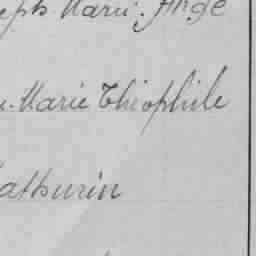 eph Marie Ange
Marie Théophile
athurin